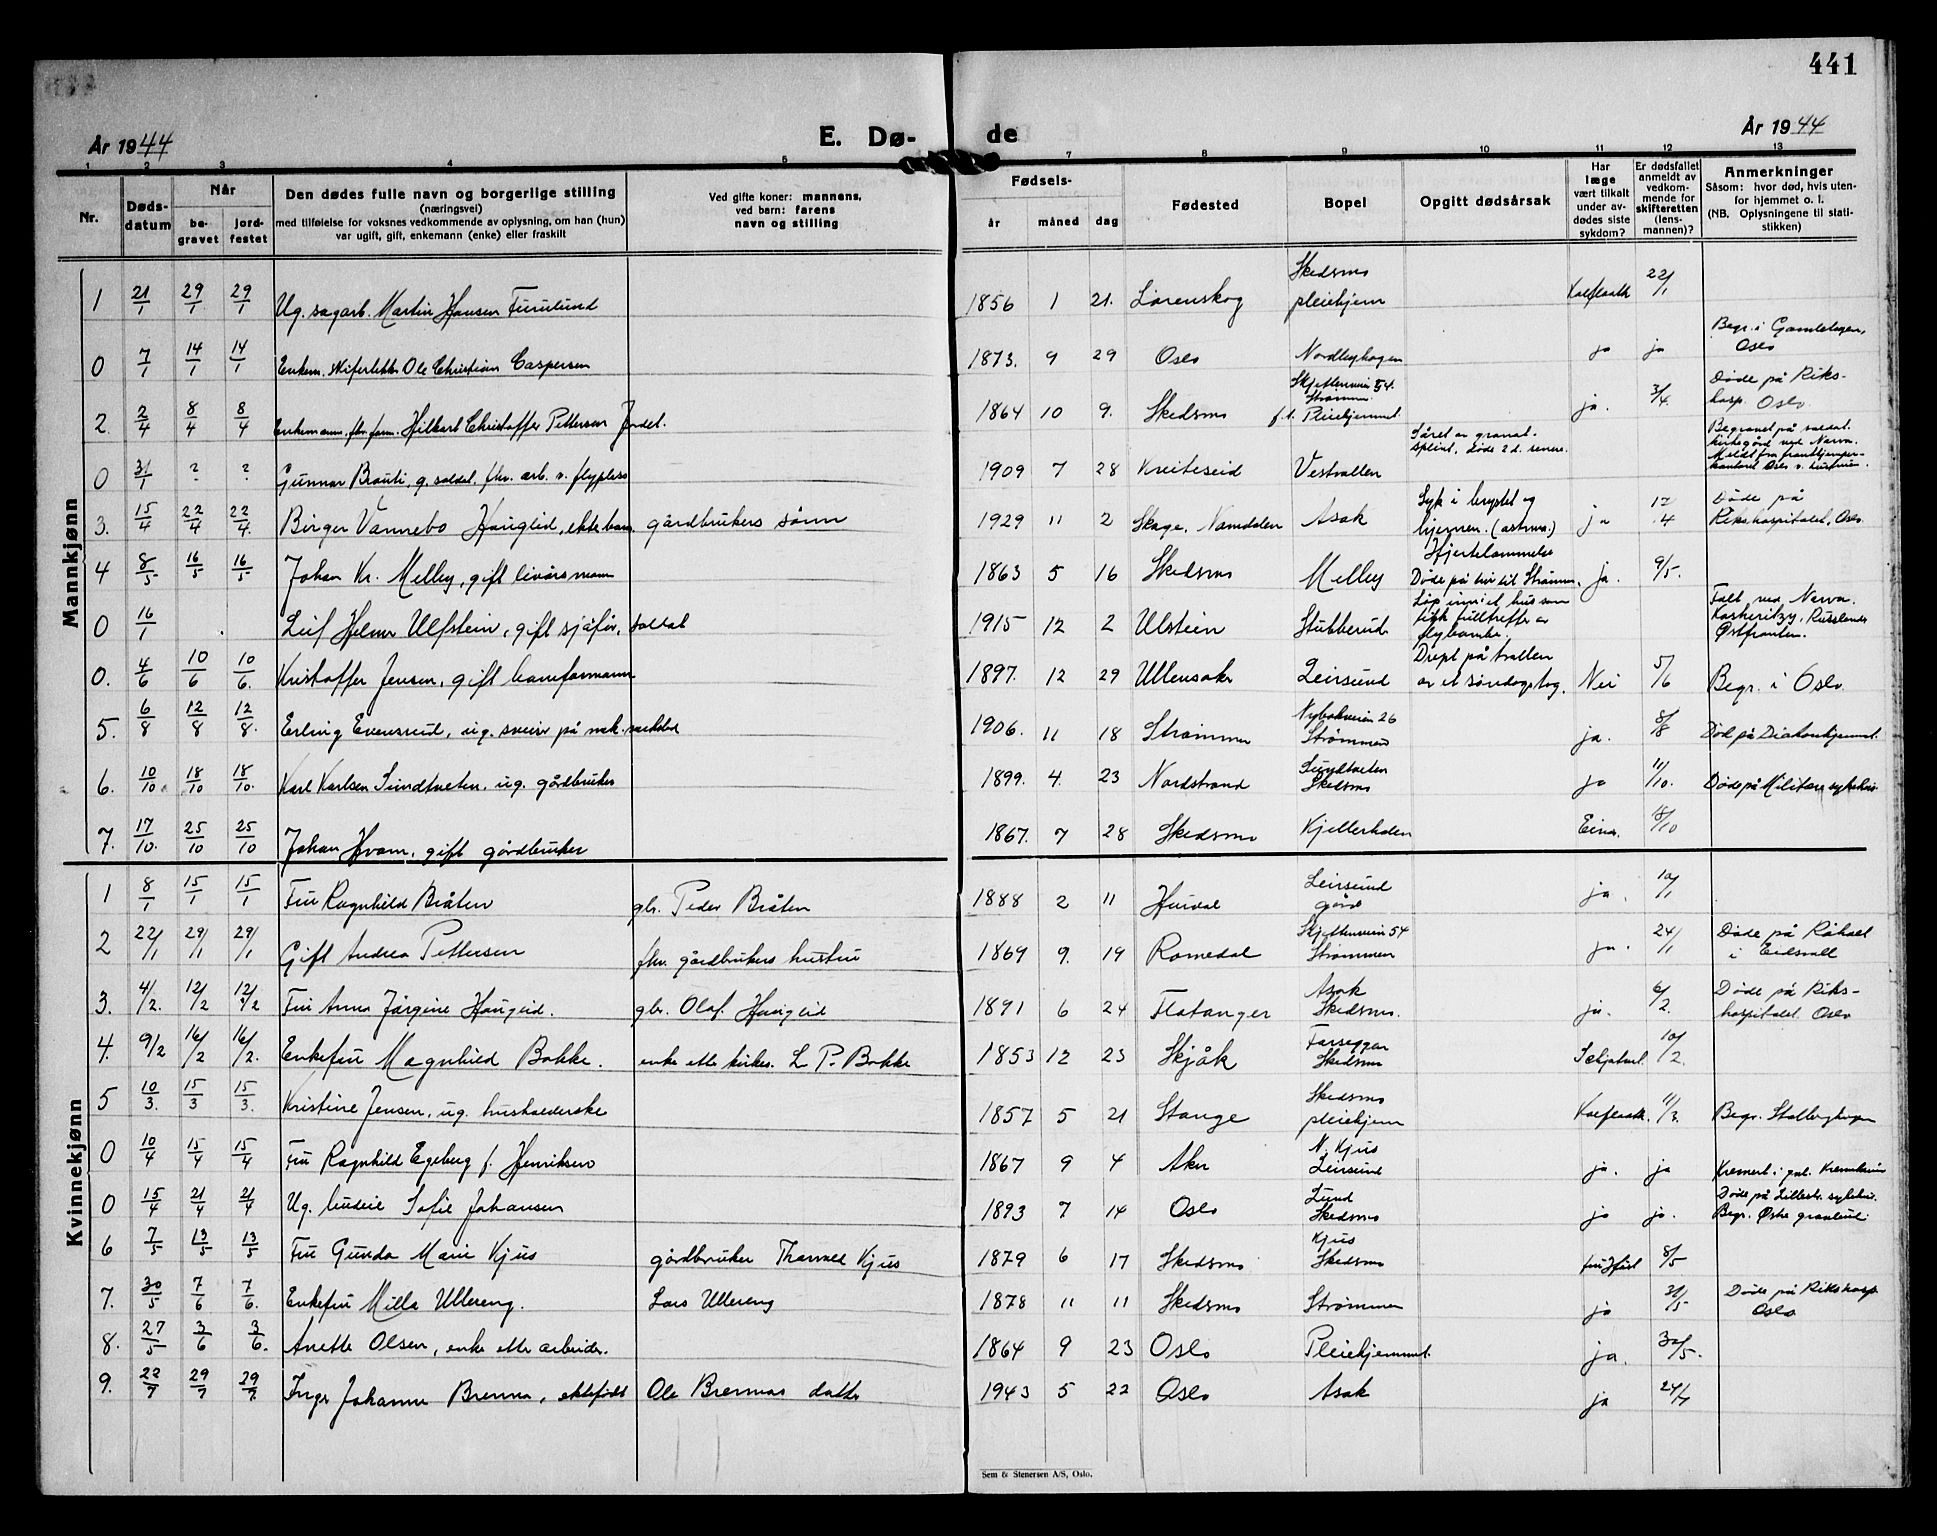 441
År 1944
E. Dø-
de
År 1944
1 2 3 4 5 7 8 9 10 11 12 13
Nr.
Døds-
datum
Når
be-
gravet
jord-
festet
Den dødes fulle navn og borgerlige stilling
(næringsvei)
med tilføielse for voksnes vedkommende av oplysning, om han (hun)
var ugift, gift, enkemann (enke) eller fraskilt
Ved gifte koner: mannens,
ved barn: farens
navn og stilling
Fødsels-
år måned dag
Fødested
Bopel
Opgitt dødsårsak
Har
læge
vært tilkalt
under av-
dødes siste
sykdom?
Er dødsfallet
anmeldt av
vedkom-
mende for
skifteretten
(lens-
mannen)?
Anmerkninger
Såsom: hvor død, hvis uten-
for hjemmet o. l.
(NB. Oplysningene til stati-
stikken)
Mannkjønn
1 21/1 29/1 29/1 Ug. sagarb. Martin Hansen Furulund 1856 1 21. Lørenskog Skedsmo pleiehjem 22/1
0 7/1 14/1 14/1 Enkem. Ole Christian Caspersen 1873. 9 29 Oslo ja ja Begr. i Gamlebyen, Oslo
2. 2/4 8/4 8/4 Enkemann, Christoffer Pettersen 1864 10 9. Skedsmo Skjettenveien 54. Strømmen f.t. Pleiehjemmet ja. 3/4. Døde på Riks-hosp. Oslo
0 31/1 ? ? Gunnar Brauti, g. soldat, fhv. arb. v. flyplass 1909 7 28 Kviteseid Vestvollen Såret av granat-splint, døde 2 d. senere. Begravet på soldat-kirkegård ved Narva. Meldt fra frontkjemper-kontoret Oslo v. hustruen.
3. 15/4 22/4 22/4 Birger Vannebo Hauglid, ekte barn gårdbrukers sønn 1929 11 2 Skage, Namdalen Asak Syk i brystet og hjernen. (astma.) ja 17/4 Døde på Rikshospitalet, Oslo
4 8/5 16/5 16/5 Johan Kr. Melby, gift livørsmann 1863 5 16 Skedsmo Melby Hjertelammelse Døde på tur til Strømm. ja. 9/5.
0 16/1 Leif Helmer Ulfstein, gift sjåfør, soldat 1915 12 2 Ulstein Stubberud Løp inn i et hus som fikk fulltreffer av flybombe. Falt ved Narva. Russland Østfronten.
0. 4/6 10/6 10/6. Kristoffer Jensen, gift baneformann 1897. 12 29 Ullensaker Leirsund Drept på trallen av et søndagstog. Nei 5/6 Begr. i Oslo
5. 6/8 12/8 12/8. Erling Evensrud, ug. sveiser på mek. verksted 1906. 11 18 Strømmen Nybakveien 26 Strømmen ja. 8/8 Død på Diakonhjemmet.
6. 10/10 18/10 18/10. Karl Karlsen Sundtveten, ug. gårdbruker 1899. 4. 23 Nordstrand Sundtveten Skedsmo ja 11/10. Døde på Militære sykehus
7. 17/10. 25/10 25/10 Johan Hvam, gift gårdbruker 1867. 7 28 Skedsmo Kjellerholen 18/10
Kvinnekjønn
1 8/1 15/1 15/1 Fru Ragnhild Bråten gbr. Peder Bråten 1888 2 11 Hurdal Leirsund gård ja. 10/1
2 22/1 29/1 29/1 Gift Andrea Pettersen fhv. gårdbrukers hustru 1869 9. 19 Romedal Skjettenveien 54 Strømmen ja. 24/1 Døde på Råholt i Eidsvoll
3. 4/2. 12/2 12/2 Fru Anna Jørgine Hauglid. gbr. Olaf Hauglid 1891 6 24 Flatanger Asak Skedsmo. ja. 6/2. Døde på Riks-hospitalet Oslo
4. 9/2 16/2 16/2. Enkefru Magnhild Bakke. enke etter kirkes. L. P. Bakke 1853 12 23 Skjåk Farseggen Skedsmo 10/2.
5 10/3. 15/3 15/3. Kristine Jensen, ug. husholderske 1857 5 21 Stange Skedsmo pleiehjem 11/3. Begr. Stalsberghagen
0 10/4 15/4 15/4 Fru Ragnhild Egeberg f. Henriksen 1867 9 4 Aker N. Kjus Leirsund ja. ja
0 15/4 21/4 21/4 Ug. budeie Sofie Johansen 1893 7 14 Oslo Lund Skedsmo ja ja. Døde på Lillestr. sykehus. Begr. Østre gravlund
6 7/5 13/5 13/5 Fru Gunda Marie Kjus gårdbruker Thorvald Kjus 1879 6 17 Skedsmo Kjus Skedsmo 8/5
7. 30/5 7/6 7/6. Enkefru Milla Ullereng. Lars Ullereng 1878 11 11 Skedsmo Strømmen ja 31/5 Døde på Rikshosp. Oslo
8. 27/5 3/6 3/6. Anette Olsen, enke etter arbeider. 1864 9 23 Oslo Pleiehjemmet. ja. 30/5.
9. 22/7 29/7 29/7. Inger Johanne Brenna, ektefødt Ole Brennas datter 1943 5 22 Oslo Asak ja 24/7
Sem & Stenersen A/S, Oslo.